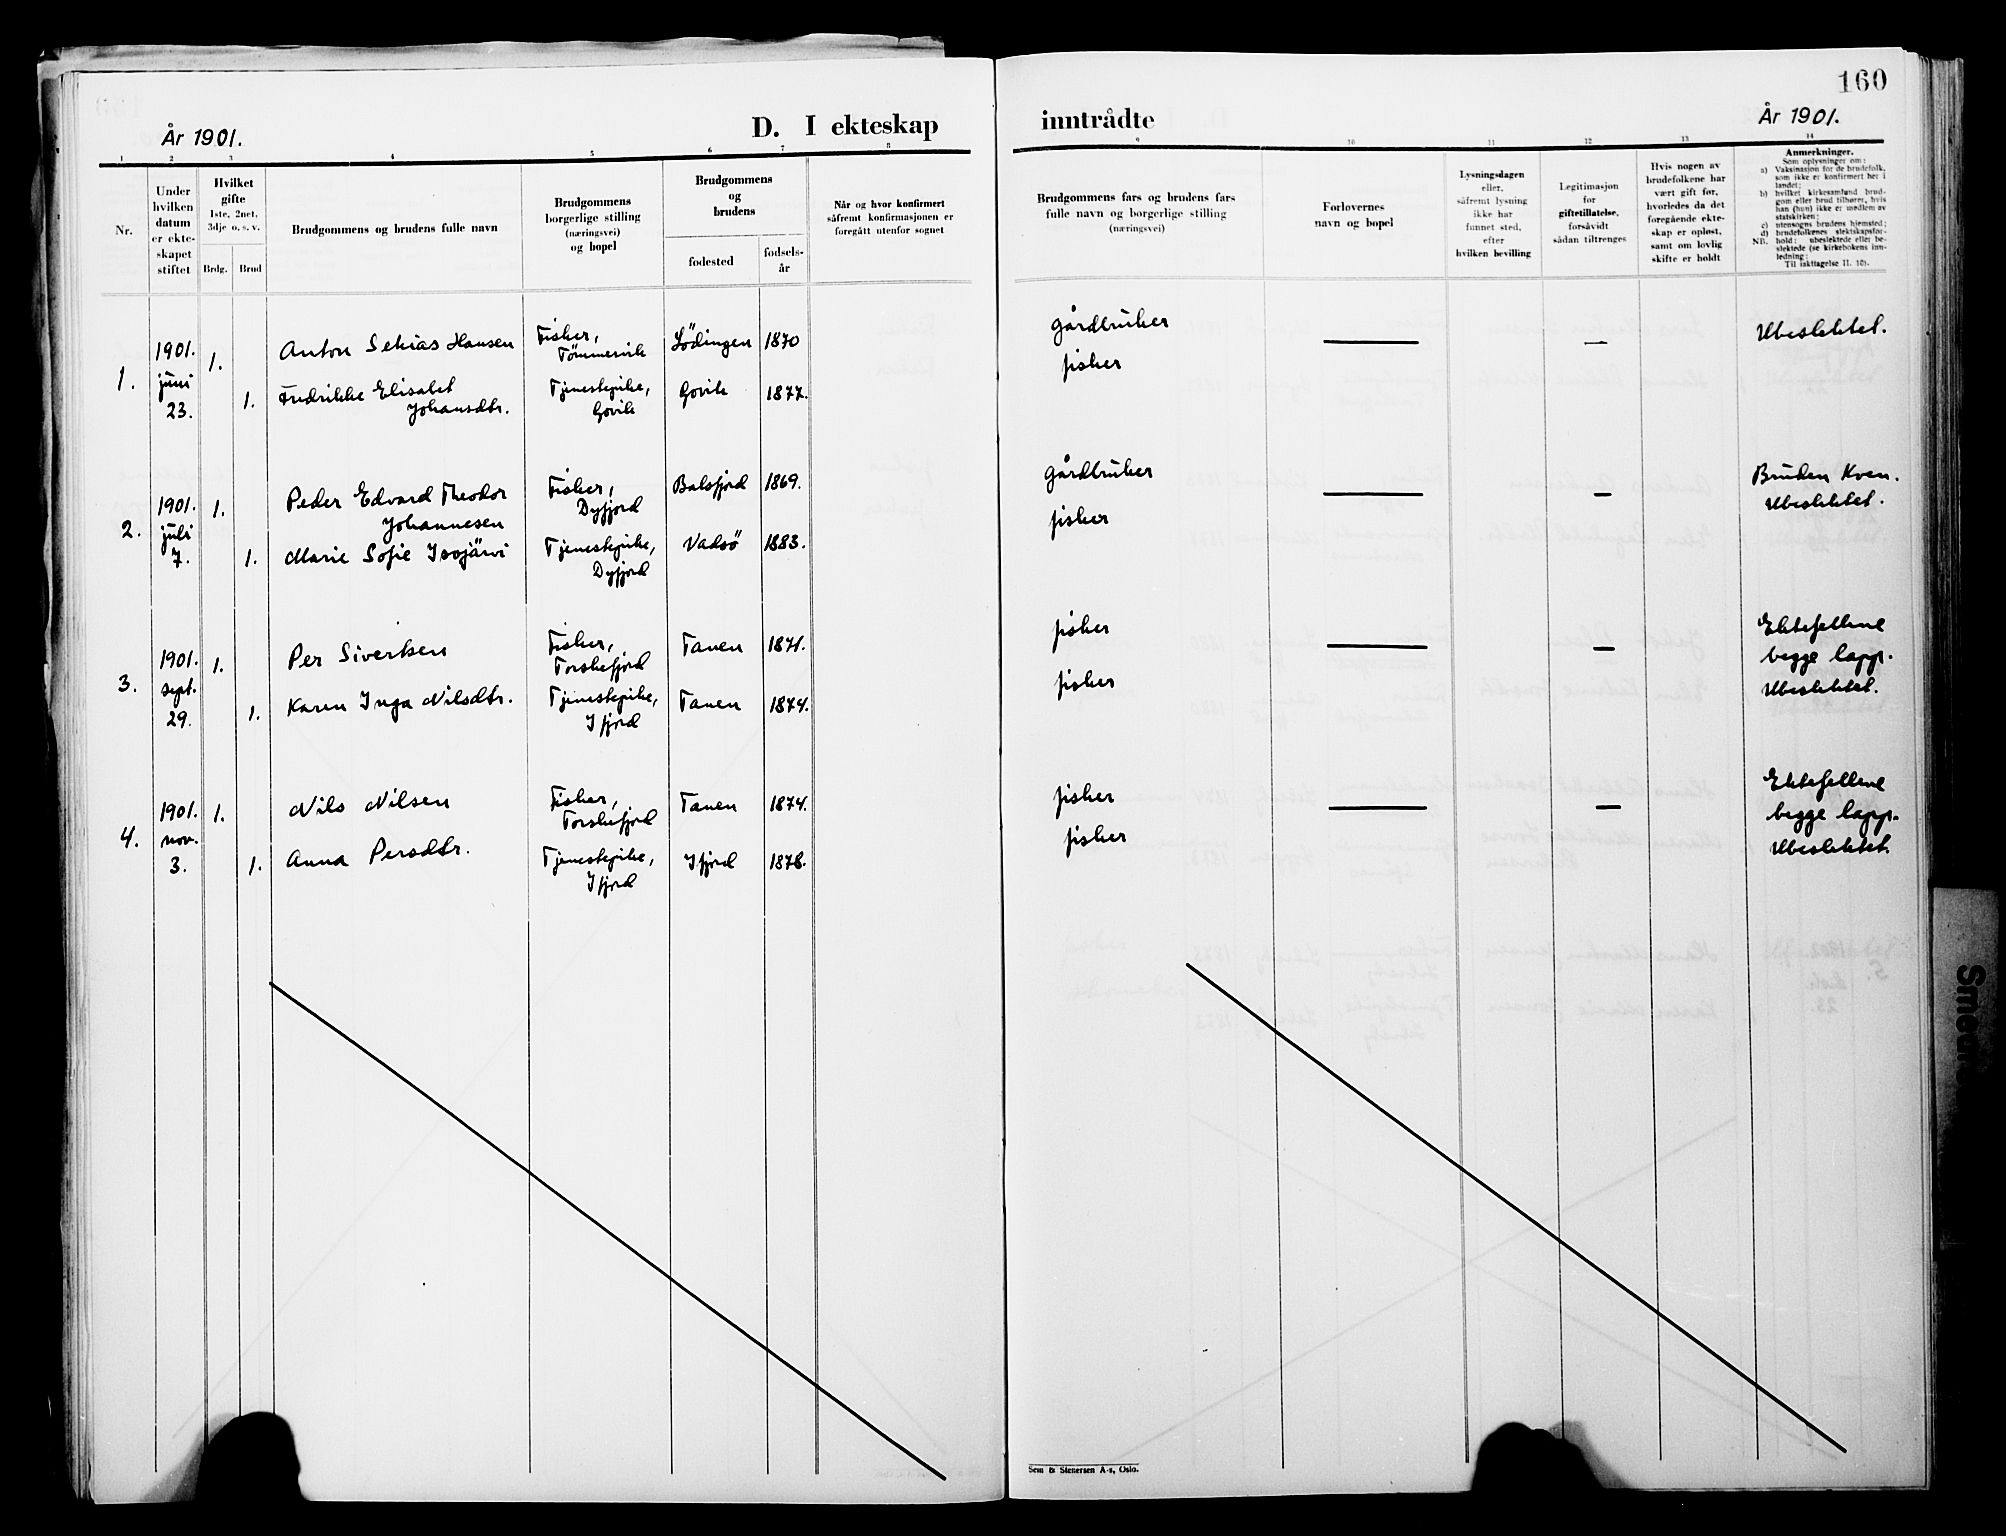 160
År 1901.
D. I ekteskap
inntrådte
År 1901.
1 2 3 4 5 6 7 8
9 10 11 12 13 14
Nr.
Under
hvilken
datum
er ekte-
skapet
stiftet
Hvilket
gifte
1ste, 2net,
3dje o. s. v.
Brdg.
Brud
Brudgommens og brudens fulle navn
Brudgommens
borgerlige stilling
(næringsvei)
og bopel
Brudgommens
og
brudens
fødested
fødsels-
år
Når og hvor konfirmert
såfremt konfirmasjonen er
foregått utenfor sognet
Brudgommens fars og brudens fars
fulle navn og borgerlige stilling
(næringsvei)
Forlovernes
navn og bopel
Lysningsdagen
eller,
såfremt lysning
ikke har
funnet sted,
efter
hvilken bevilling
Legitimasjon
for
giftetillatelse,
forsåvidt
sådan tiltrenges
Hvis nogen av
brudefolkene har
vært gift før,
hvorledes da det
foregående ekte-
skap er opløst,
samt om lovlig
skifte er holdt
Anmerkninger.
Som oplysninger om:
a) Vaksinasjon for de brudefolk,
som ikke er konfirmert her i
landet;
b) hvilket kirkesamfund brud-
gom eller brud tilhører, hvis
han (hun) ikke er medlem av
statskirken;
c) utensogns brudens hjemsted;
d) brudefolkenes slektskapsfor-
NB. hold: ubeslektede eller be-
slektede (se kirkebokens inn-
ledning;
Til iakttagelse II. 10).
1.
1901.
juni
23.
1.
Anton Sekias Hansen
Fisker,
Tømmervik
Lödingen
1870
1.
Fredrikke Elisabet
Johansdtr.
Tjenestepike,
Govik
Govik
1877.
gårdbruker
fisker
—
—
Ubeslektet.
2.
1901.
juli
7.
1.
Peder Edvard Theodor
Johannesen
Fisker,
Dyfjord
Balsfjord
1869.
1.
Marie Sofie Isojärvi
Tjenestepike,
Dyfjord
Vadsö
1883.
gårdbruker
fisker
—
—
Bruden Kven.
Ubeslektet.
3.
1901.
sept.
29.
1.
Per Sivertsen
Fisker,
Torskefjord
Tanen
1871.
1.
Karen Inga Nilsdtr.
Tjenestepike,
Ifjord
Tanen
1874.
fisker
fisker
—
—
Ektefellene
begge lapp.
Ubeslektet.
4.
1901.
nov.
3.
1.
Nils Nilsen
Fisker,
Torskefjord
Tanen
1874.
1.
Anna Persdtr.
Tjenestepike,
Ifjord
Ifjord
1878.
fisker
fisker
—
—
Ektefellene
begge lapp.
Ubeslektet.
Sem & Stenersen A-s, Oslo.